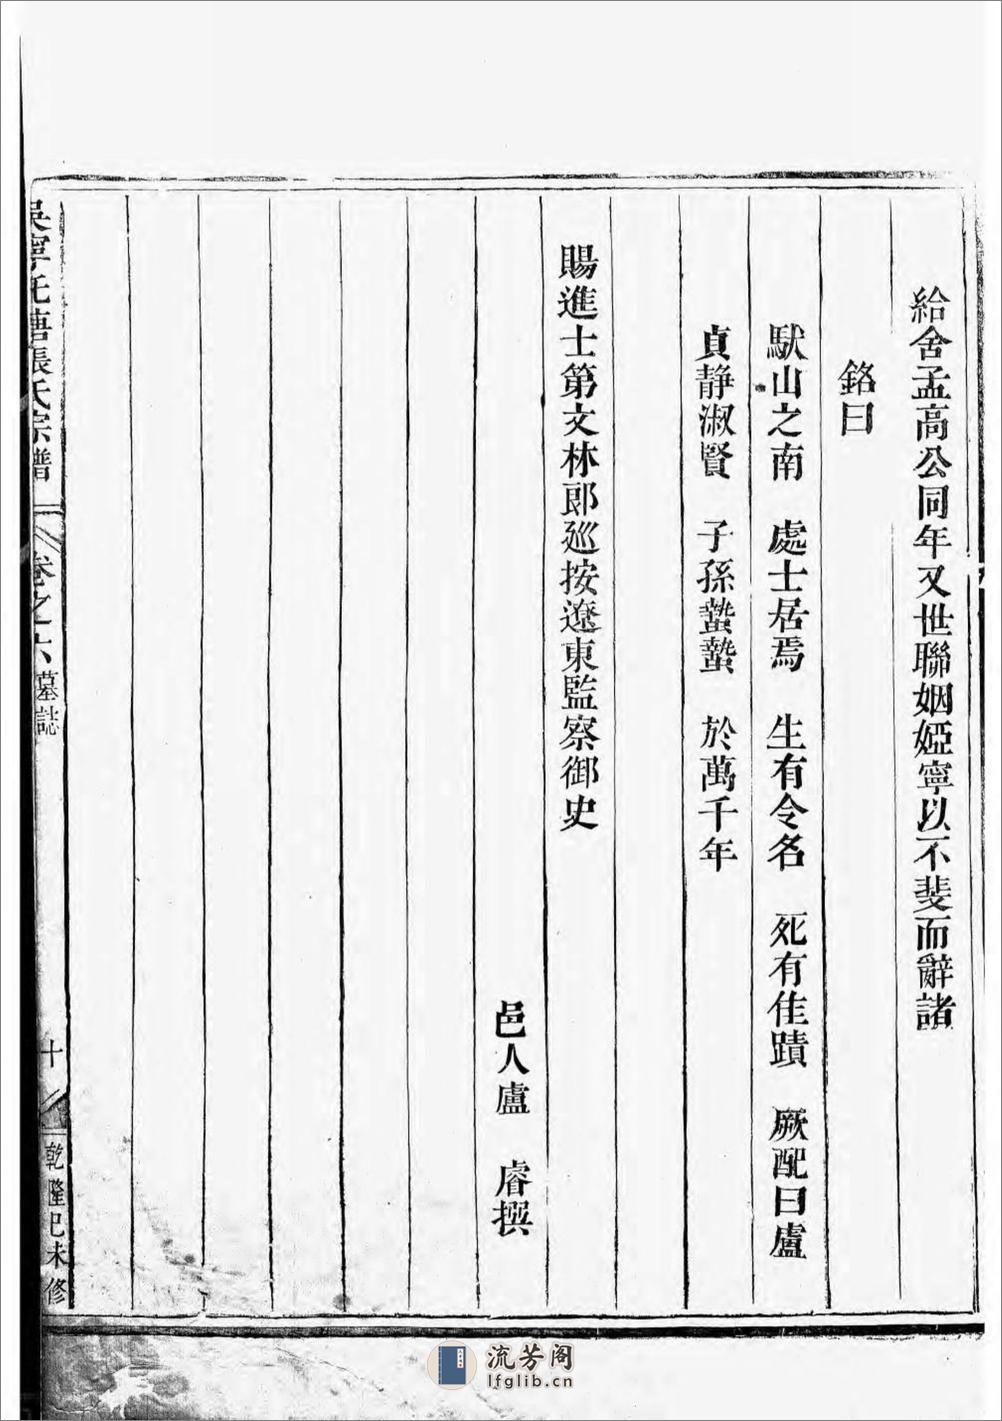 給舍孟高公同年又世聯姻婭寧以不斐而辭諸
銘曰
馱山之南　處士居焉　生有令名　死有佳蹟　厥配曰盧
貞静淑賢　子孫蟄蟄　於萬千年
賜進士第文林郎廵按遼東監察御史
邑人盧　睿撰
吳寧托塘張氏宗譜　卷之六　墓誌　十　乾隆已未修
流芳阁
lfglib.cn